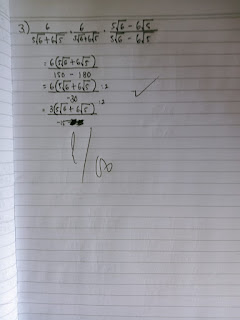 3) 6/(5√6+6√5) · 6/(5√6+6√5) · (5√6 - 6√5)/(5√6 - 6√5)
= 6(5√6+6√5)/(150 - 180)
= 6(5√6+6√5)/-30 :2 :2
= 3(5√6+6√5)/-15